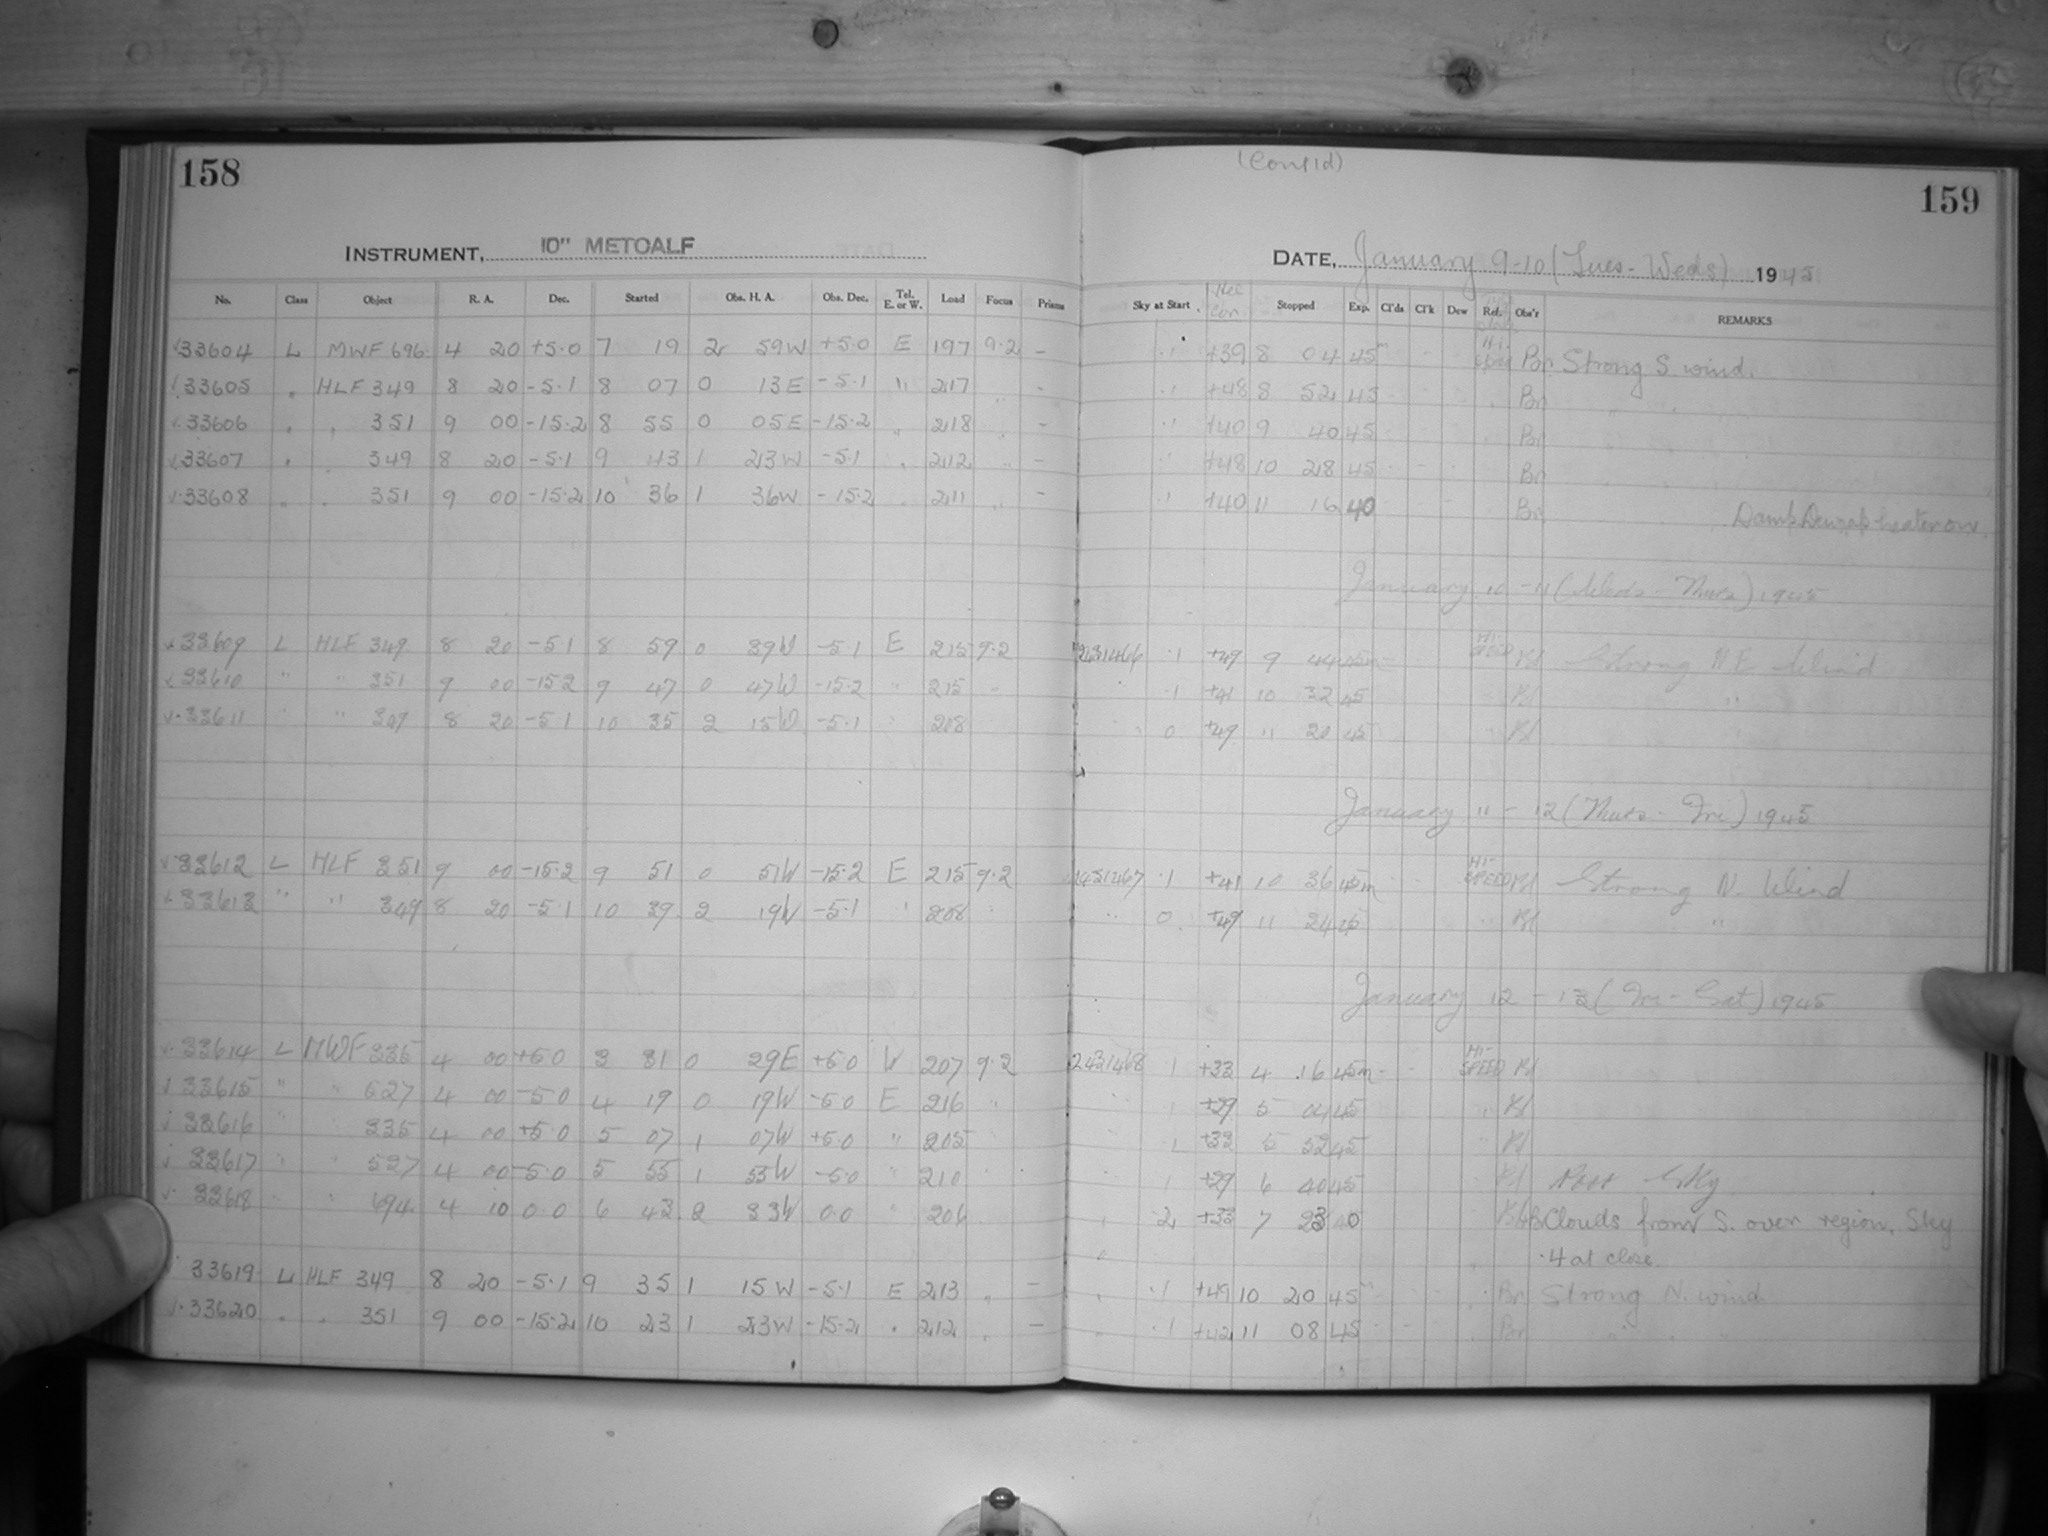 158
(Cont'd)
159
INSTRUMENT, 10" METCALF
DATE, January 9-10 (Tues - Weds) 1945
No. Class Object R. A. Dec. Started Obs. H. A. Obs. Dec. Tel. E. or W. Load Focus Prisms Sky at Start Stopped Exp. Cl'ds Cl'k Dew Ref. Obs'r REMARKS
33604 L MWF 696 4 20 +5.0 7 19 2 59W +5.0 E 197 9.2 - .1 +39 8 04 45m Br Strong S. wind.
33605 " HLF 349 8 20 -5.1 8 07 0 13E -5.1 " 217 - .1 +48 8 52 45 Br
33606 " " 351 9 00 -15.2 8 55 0 05E -15.2 " 218 " - .1 +40 9 40 45 Br
33607 " " 349 8 20 -5.1 9 43 1 23W -5.1 " 212 " - +48 10 28 45 Br
33608 " " 351 9 00 -15.2 10 36 1 36W -15.2 " 211 " - .1 +40 11 16 40 Br Damp Dewcap heater on.
January 10-11 (Weds - Thurs) 1945
33609 L HLF 349 8 20 -5.1 8 59 0 39W -5.1 E 215 9.2 2431466 .1 +49 9 44 45m HI-SPEED Strong NE Wind
33610 " " 351 9 00 -15.2 9 47 0 47W -15.2 " 215 " " .1 +41 10 32 45 "
33611 " " 349 8 20 -5.1 10 35 2 15W -5.1 " 208 " 0 +49 11 20 45 "
January 11-12 (Thurs - Fri) 1945
33612 L HLF 351 9 00 -15.2 9 51 0 51W -15.2 E 215 9.2 2431467 .1 +41 10 36 45m HI-SPEED Strong N. Wind
33613 " " 349 8 20 -5.1 10 39 2 19W -5.1 " 208 " " 0 +49 11 24 45 " "
January 12-13 (Fri - Sat) 1945
33614 L MWF 335 4 00 +5.0 3 31 0 29E +5.0 W 207 9.2 2431468 1 +33 4 16 45m HI-SPEED
33615 " " 527 4 00 -5.0 4 19 0 19W -5.0 E 216 " " 1 +29 5 04 45 "
33616 " " 335 4 00 +5.0 5 07 1 07W +5.0 " 205 1 +33 5 52 45 "
33617 " " 527 4 00 -5.0 5 55 1 55W -5.0 " 210 1 +29 6 40 45 Poor Sky
33618 " " 694 4 10 0.0 6 43 2 33W 0.0 " 206 " .2 +33 7 23 40 Clouds from S. over region. Sky
.4 at close.
33619 L HLF 349 8 20 -5.1 9 35 1 15W -5.1 E 213 " - " .1 +49 10 20 45m " Br Strong N. wind
33620 " " 351 9 00 -15.2 10 23 1 23W -15.2 " 212 " - " .1 +42 11 08 45 " Br " " "